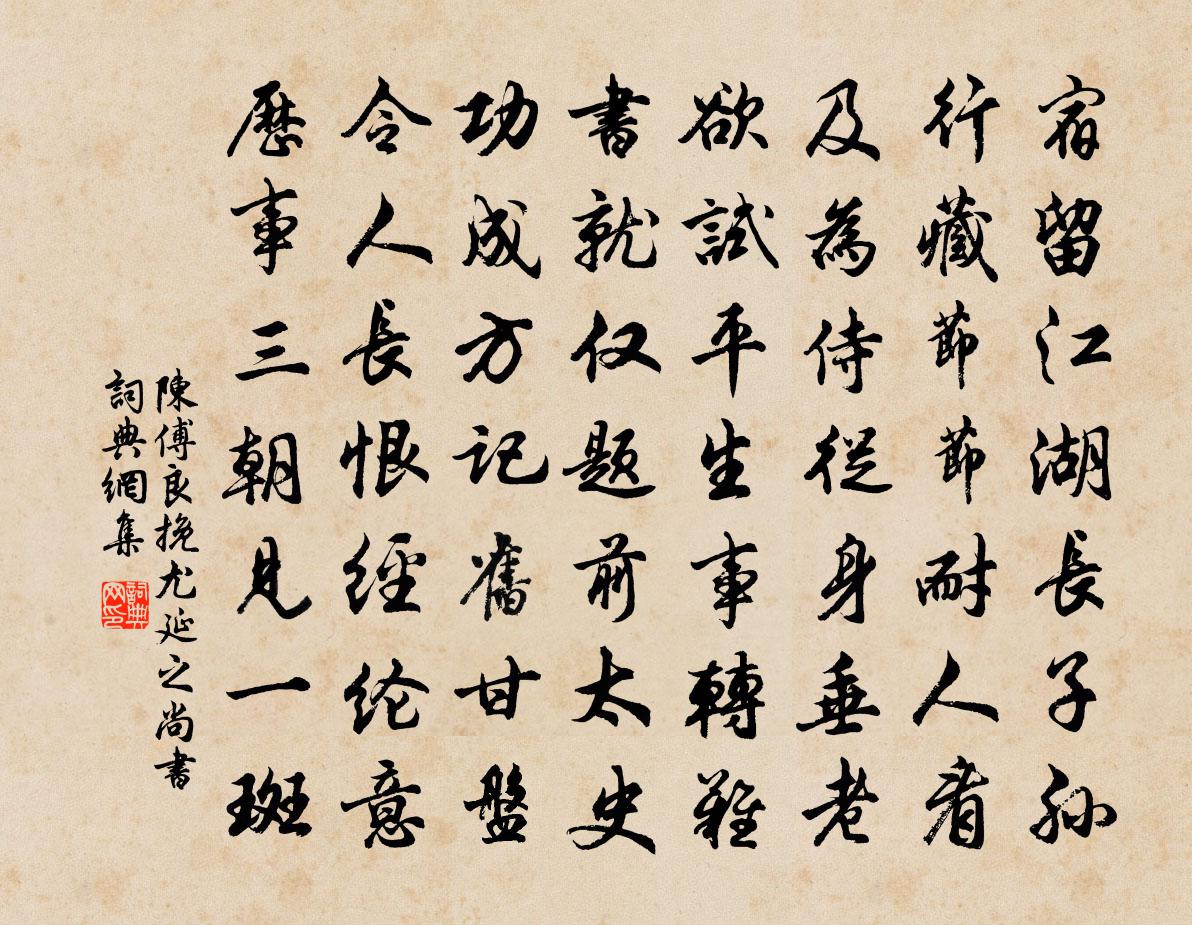 宿留江湖長子孫
行藏節節耐人看
及為侍從身垂老
欲試平生事轉難
書就仅題前太史
功成方記舊甘盤
令人長恨經纶意
歷事三朝見一斑
陳傅良挽尤延之尚書
詞典網集
詞典网印